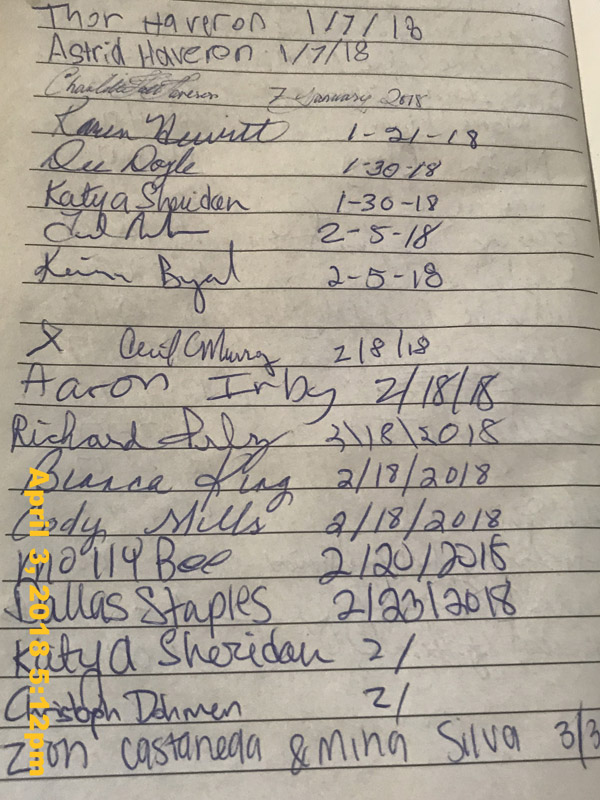 Thor Haveron 1/7/18
Astrid Haveron 1/7/18
Charlotte 7 January 2018
Karen Hewitt 1-21-18
Dee Doyle 1-30-18
Katya Sheridan 1-30-18
2-5-18
2-5-18
X Cecil 2/8/18
Aaron Irby 2/18/18
Richard 2\18\2018
Bianca King 2/18/2018
Cody Mills 2/18/2018
Molly Bee 2/20/2018
Dallas Staples 2/23/2018
Katya Sheridan 2/
Christoph Dahmen 2/
Zion Castaneda & Mina Silva 3/3
April 3, 2018 5:12pm